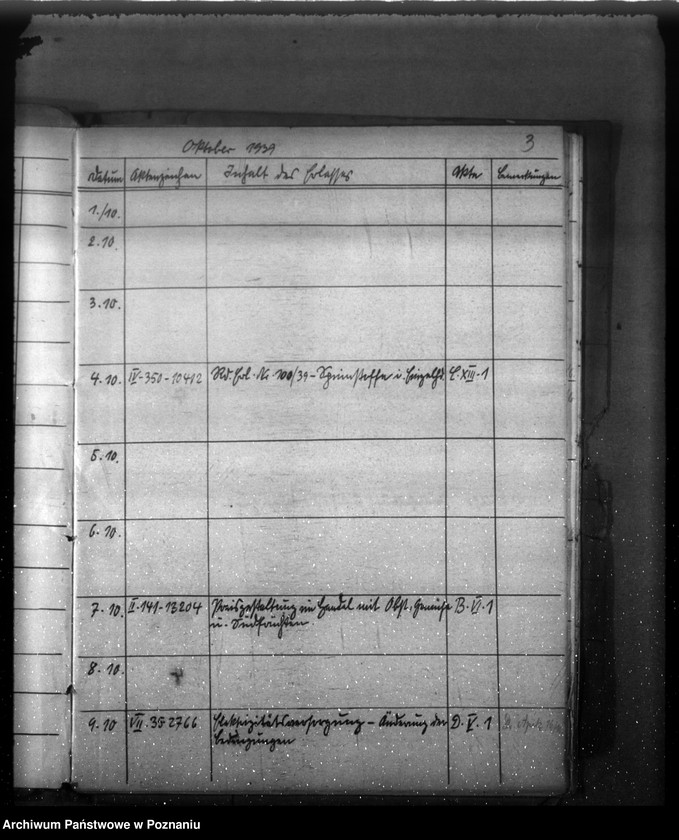 Oktober 1939
3
Datum Aktenzeichen Inhalt des Erlasses Akte Bemerkungen
1./10.
2.10.
3.10.
4.10. IV-350-10412 Rd. Erl. Nr. 100/39 - Spinnstoffe i. Einzelhd. C. XIII-1
5.10.
6.10.
7.10. II-141-13204 Preisgestaltung im Handel mit Obst, Gemüse B-VI-1
u. Südfrüchten.
8.10.
9.10 VII-35-2766 Elektrizitätsversorgung - Änderung der D. V. 1
Bedingungen
Archiwum Państwowe w Poznaniu